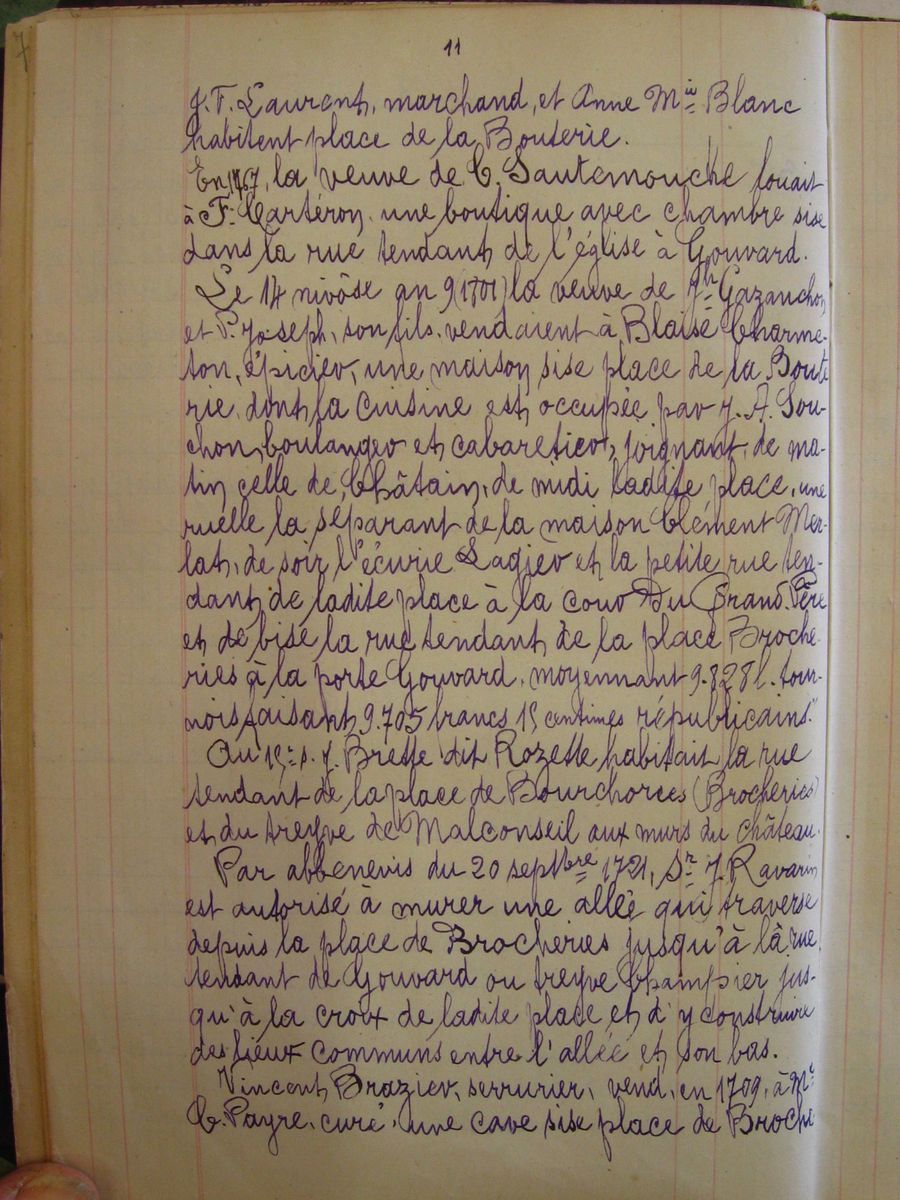 7
11
J. F. Laurent, marchand, et Anne Mie Blanc
habitent place de la Bouterie.
En 1767, la veuve de C. Sautemouche louait
à F. Cartéron une boutique avec chambre sise
dans la rue tendant de l'église à Gouvard.
Le 14 nivôse an 9 (1801) la veuve de Jh Gazanchon
et P. Joseph, son fils, vendaient à Blaise Charme-
ton, épicier, une maison sise place de la Boute
rie, dont la cuisine est occupée par J. A. Sou-
chon, boulanger et cabaretier, joignant, de ma-
tin celle de Châtain, de midi ladite place, une
ruelle la séparant de la maison Clément Mer-
lat, de soir l'écurie Lagier et la petite rue ten-
dant de ladite place à la cour du Grand. Père
et de bise la rue tendant de la place Broche-
ries à la porte Gouvard, moyennant 9.828 l. tour-
nois faisant 9.705 francs 15 centimes républicains."
Au 15e s. J. Brette dit Rozette habitait la rue
tendant de la place de Bourchorees (Brocheries)
et du treyve de Malconseil aux murs du château.
Par abbenevis du 20 septbre 1721, Sr J. Ravarin
est autorisé à murer une allée qui traverse
depuis la place de Brocheries jusqu'à la rue
tendant de Gouvard ou treyve Champier jus-
qu'à la croix de ladite place et d'y construire
des lieux communs entre l'allée et son bas.
Vincent Brazier, serrurier, vend, en 1709, à Mr
C. Payre, curé, une cave sise place de Broche